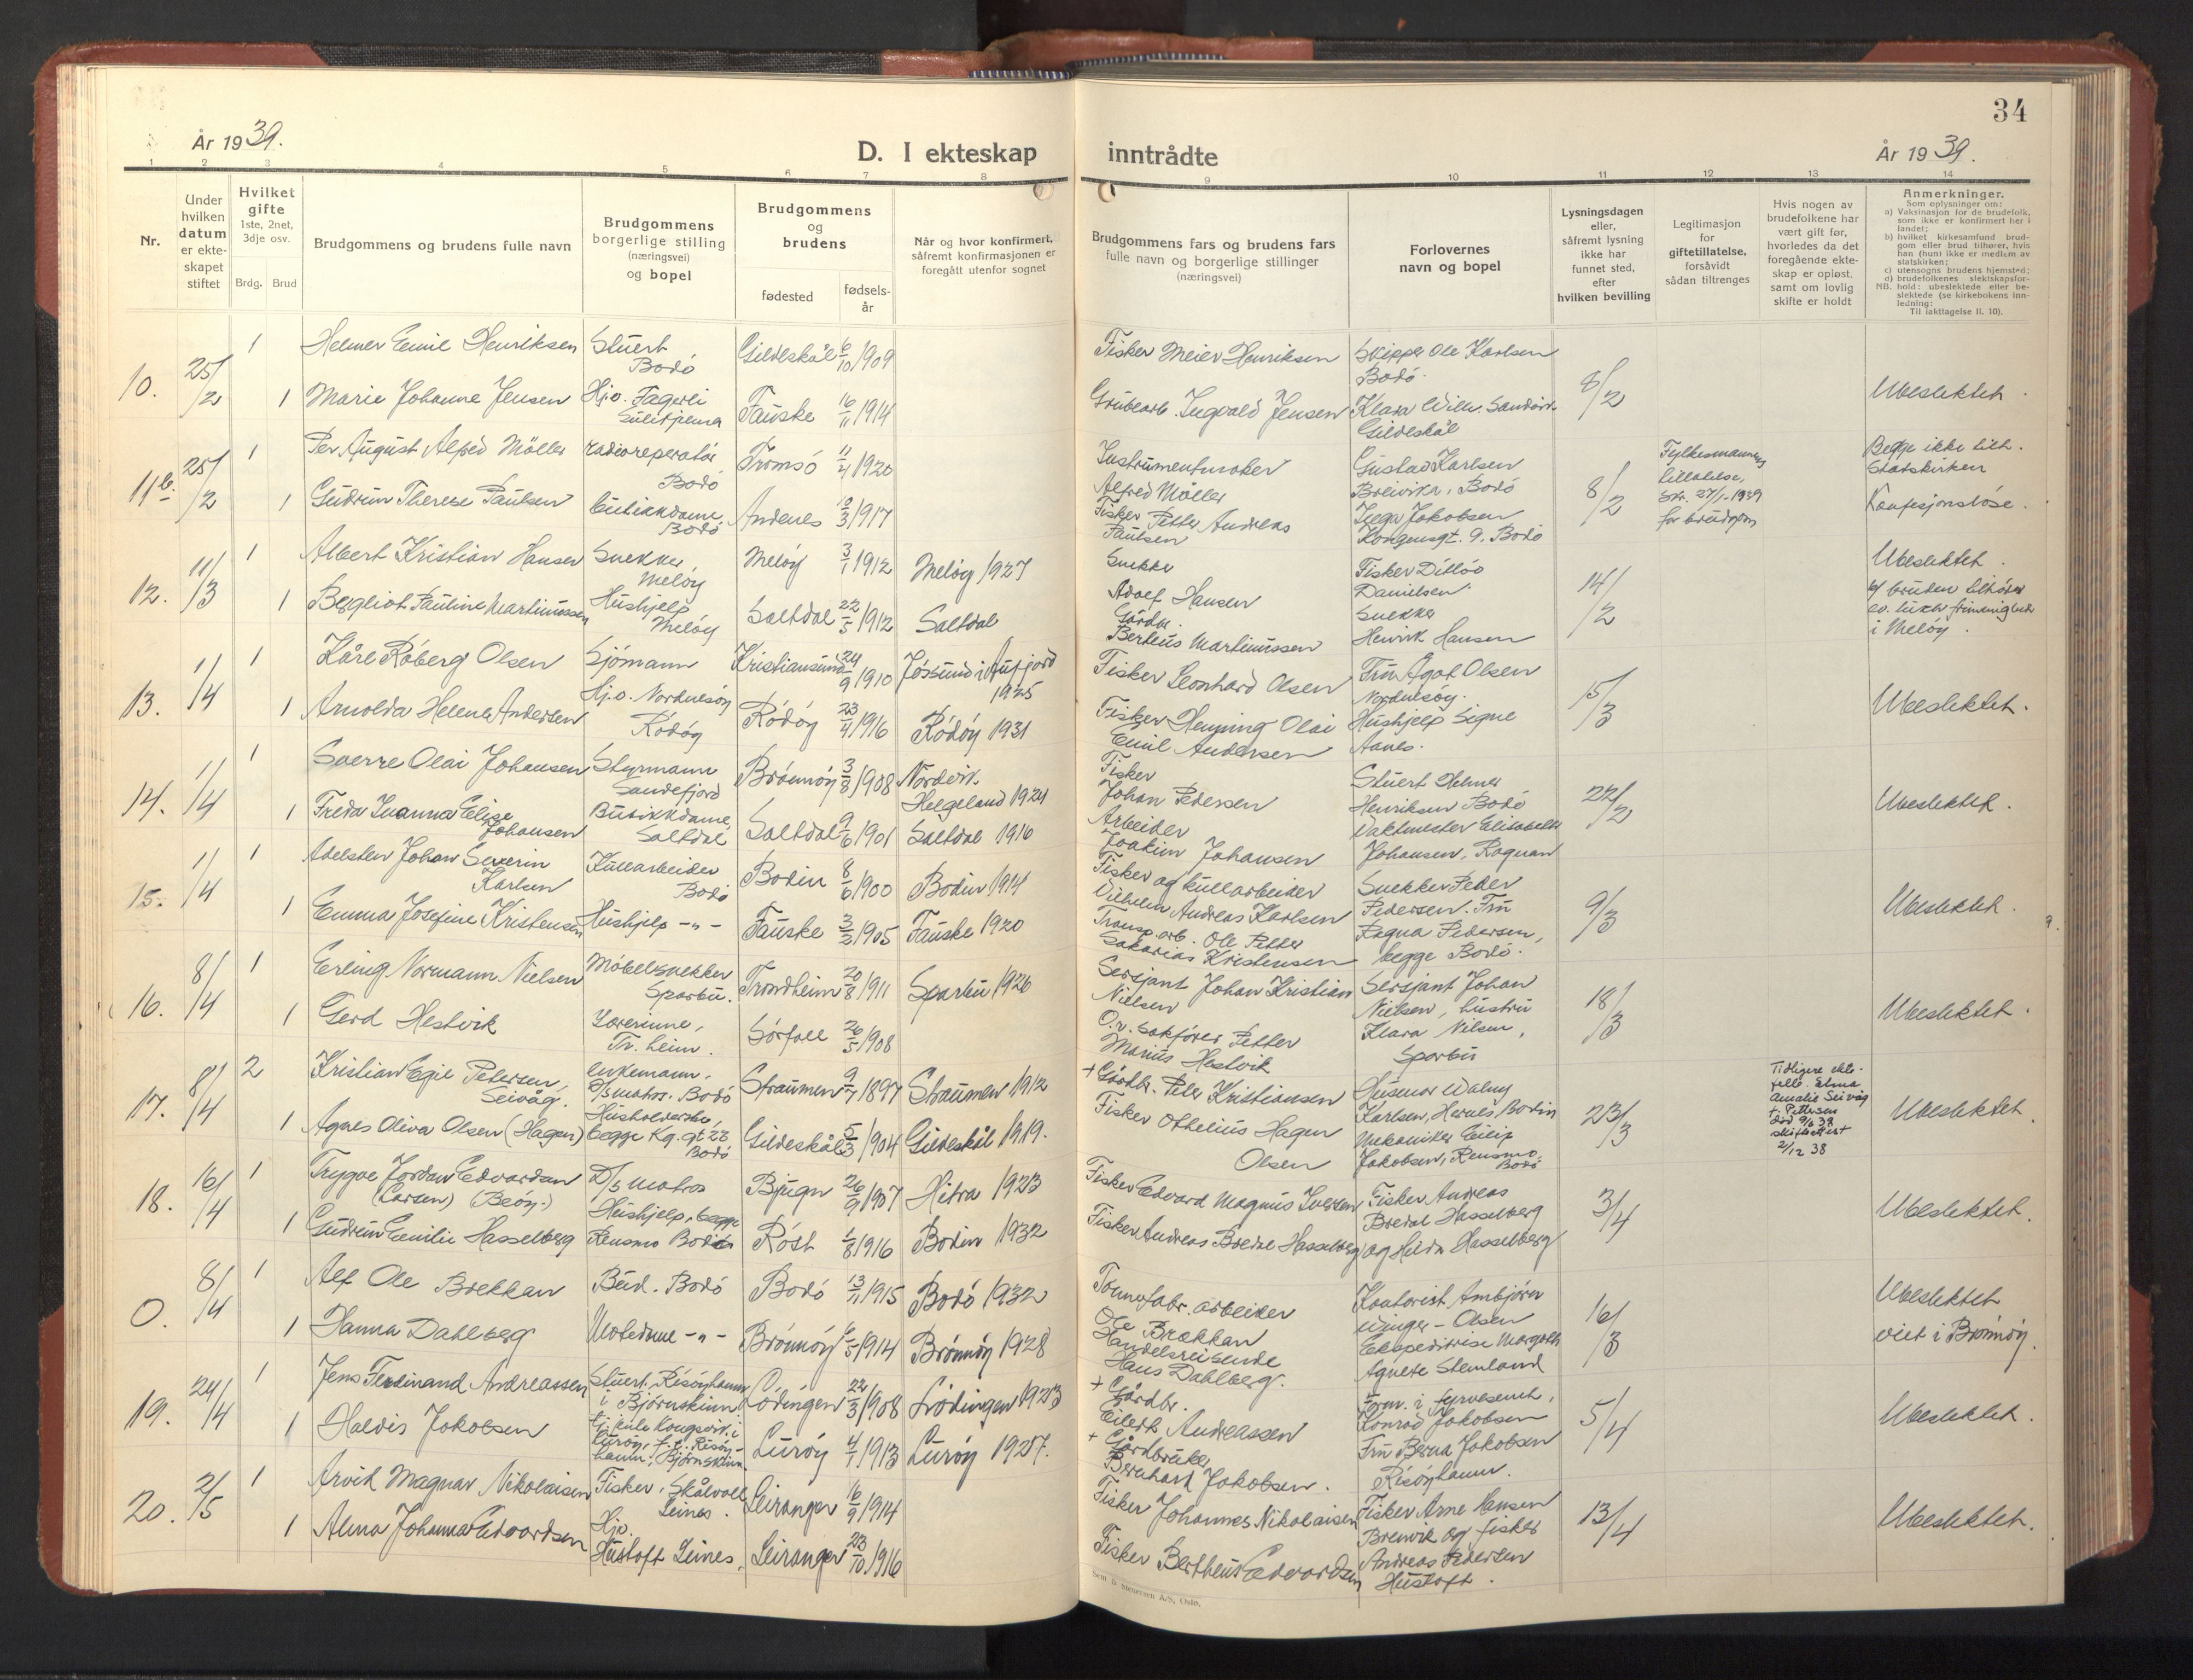 34
År 1939.
D. I ekteskap inntrådte
År 1939.
1 2 3 4 5 6 7 8 9 10 11 12 13 14
Nr.
Under
hvilken
datum
er ekte-
skapet
stiftet
Hvilket
gifte
1ste, 2net,
3dje osv.
Brdg. Brud
Brudgommens og brudens fulle navn
Brudgommens
borgerlige stilling
(næringsvei)
og bopel
Brudgommens
og
brudens
fødested
fødsels-
år
Når og hvor konfirmert,
såfremt konfirmasjonen er
foregått utenfor sognet
Brudgommens fars og brudens fars
fulle navn og borgerlige stillinger
(næringsvei)
Forlovernes
navn og bopel
Lysningsdagen
eller,
såfremt lysning
ikke har
funnet sted,
efter
hvilken bevilling
Legitimasjon
for
giftetillatelse,
forsåvidt
sådan tiltrenges
Hvis nogen av
brudefolkene har
vært gift før,
hvorledes da det
foregående ekte-
skap er opløst,
samt om lovlig
skifte er holdt
Anmerkninger.
Som oplysninger om:
a) Vaksinasjon for de brudefolk,
som ikke er konfirmert her i
landet;
b) hvilket kirkesamfund brud-
gom eller brud tilhører, hvis
han (hun) ikke er medlem av
statskirken;
c) utensogns brudens hjemsted;
d) brudefolkenes slektskapsfor-
NB. hold: ubeslektede eller be-
slektede (se kirkebokens inn-
ledning:
Til iakttagelse II. 10).
10. 25/2
1 Helmer Emil Henriksen
Stuert
Bodö
Gildeskål 6/10 1909
Fisker Meier Henriksen
Skipper Ole Karlsen
Bodö.
8/2
Ubeslektet.
1 Marie Johanne Jensen
Hj.o. Fagerli
Sulitjelma
Fauske 16/11 1914
Grubearb. Ingvald Jensen
Klara Wilh.
Gildeskål
11b. 25/2
1 Per August Alfred Möller
radioreperatör
Bodö
Tromsö 11/4 1920
Instrumentmaker
Alfred Möller
Gustav Karlsen
Breivika, Bodö
8/2
Fylkesmannens
tillatelse,
skr. 27/1-1939
for brudgom
Begge ikke tilh.
statskirken
Konfesjonslöse.
1 Gudrun Therese Paulsen
butikkdame,
Bodö
Andenes 10/3 1917
Fisker Petter Andreas
Paulsen
Inga Jakobsen
Kongensgt. 9. Bodö
12. 11/3
1 Albert Kristian Hansen
Snekker,
Melöy
Melöy 3/1 1912
Melöy 1927
Snekker
Adolf Hansen
Fisker Ditlöv
Danielsen
14/2
Ubeslektet.
b/ bruden tilhörer
ev. luth. frimenighet
i Melöy.
1 Bergliot Pauline Martinussen
Hushjelp
Melöy
Saltdal 22/5 1912
Saltdal
Gårdbr.
Berteus Martinussen
Snekker
Henrik Hansen
13. 1/4
1 Kåre Råberg Olsen
Sjömann
Kristiansund 24/9 1910
Jössund i Aufjord
1925
Fisker Leonhard Olsen
Fru Ågot Olsen
Nordnesöy.
15/3
Ubeslektet.
1 Arnolda Helene Andersen
Hj.o. Nordnesöy
Rödöy
Rödöy 23/4 1916
Rödöy 1931
Fisker Henning Olai
Emil Andersen
Hushjelp Signe
Aanes.
14. 1/4
1 Sverre Olai Johansen
Styrmann
Sandefjord
Brönnöy 3/8 1908
Nordvik.
Helgeland 1924
Fisker
Johan Pedersen
Stuert Helmer
Henriksen Bodö
22/2
Ubeslektet.
1 Freda Ivanna Elise
Johansen
Butikkdame,
Saltdal
Saltdal 9/6 1901
Saltdal 1916
Arbeider
Joakim Johansen
Vaktmester Elisabeth
Johansen, Rognan
15. 1/4
1 Adelsten Johan Severin
Karlsen
Kullarbeider
Bodö
Bodin 8/6 1900
Bodin 1914
Fisker og kullarbeider
Vilhelm Andreas Karlsen
Snekker Peder
Pedersen. Fru
9/3
Ubeslektet.
1 Emma Josefine Kristensen
Hushjelp -"-
Fauske 3/2 1905
Fauske 1920
Transp.arb. Ole Petter
Sakarias Kristensen
Ragna Pedersen,
begge Bodö.
16. 8/4
1 Erling Normann Nielsen
Möbelsnekker
Sparbu.
Trondheim 20/8 1911
Sparbu 1926
Sersjant Johan Kristian
Nielsen
Sersjant Johan
Nielsen, hustru
18/3
Ubeslektet.
1 Gerd Hestvik
Lærerinne,
Tr.heim.
Sörfold 26/5 1908
O.r. sakförer Petter
Marius Hestvik
Klara Nilsen,
Sparbu
17. 8/4
2 Kristian Egil Petersen,
Seivåg.
enkemann,
D/s matros. Bodö
Straumen 9/7 1897
Straumen 1912
+ Gårdbr. Peter Kristiansen
Husmor Walny
Karlsen, Hernes, Bodin
23/3
Tidligere ekte-
felle. Elma
Amalie Seivåg
f. Pettersen
död 9/6 38
skifteattest
2/12 38
Ubeslektet.
1 Agnes Oliva Olsen (Hagen)
Husholderske,
begge Kg. gt 22,
Bodö
Gildeskål 5/3 1904
Gildeskål 1919.
Fisker Othelius Hagen
Olsen
Mekaniker Eilif
Jakobsen, Rensmo,
Bodö
18. 16/4
1 Trygve Jordan Edvardsen
(Larsen) (Beöy.)
D/s Matros
Bjugn 26/9 1907
Hitra 1923
Fisker Edvard Magnus Iversen
Fisker Andreas
Bredal Hasselberg
3/4
Ubeslektet.
1 Gudrun Emilie Hasselberg
Hushjelp, begge
Rensmo Bodin
Röst 6/8 1916
Bodin 1932
Fisker Andreas Bredal Hasselberg
og Hilda Hasselberg
0. 8/4
1 Alf Ole Brekkan
Bud. Bodö
Bodö 13/11 1915
Bodö 1932
Tönnefabr. arbeider
Ole Brækkan
Kontorist Ambjörn
Winger-Olsen
16/3
Ubeslektet
viet i Brönnöy.
1 Hanna Dahlberg
Motedame -"-
Brönnöy 6/5 1914
Brönnöy 1928
Handelsreisende
Hans Dahlberg.
Ekspeditrise Margoth
Agnete Stemland
19. 24/4
1 Jens Ferdinand Andreassen
Stuert. Risöyhamn
i Björnskinn
Lödingen 22/3 1908
Lödingen 1923
+ Gårdbr.
Eilert Andreassen
Form. i fyrvesenet,
Konrad Jakobsen
5/4
Ubeslektet.
1 Haldis Jakobsen
Luröy, f.t. Risöy-
hamn, Björnskinn
Luröy 4/7 1913
Luröy 1927.
+ Gårdbruker
Bernhard Jakobsen.
Fru Berna Jakobsen
Risöyhamn.
20. 2/5
1 Arvid Magnar Nikolaisen
Fisker, Skålvoll
Leines.
Leiranger 16/9 1914
Fisker Johannes Nikolaisen
Fisker Arne Hansen
Brenvik og fisker
13/4
Ubeslektet.
1 Alma Johanna Edvardsen
Hjo.
Hustoft Leines.
Leiranger 23/10 1916
Fisker Bertheus Edvardsen
Andreas Pedersen
Hustoft.
Sem & Stenersen A/S, Oslo.